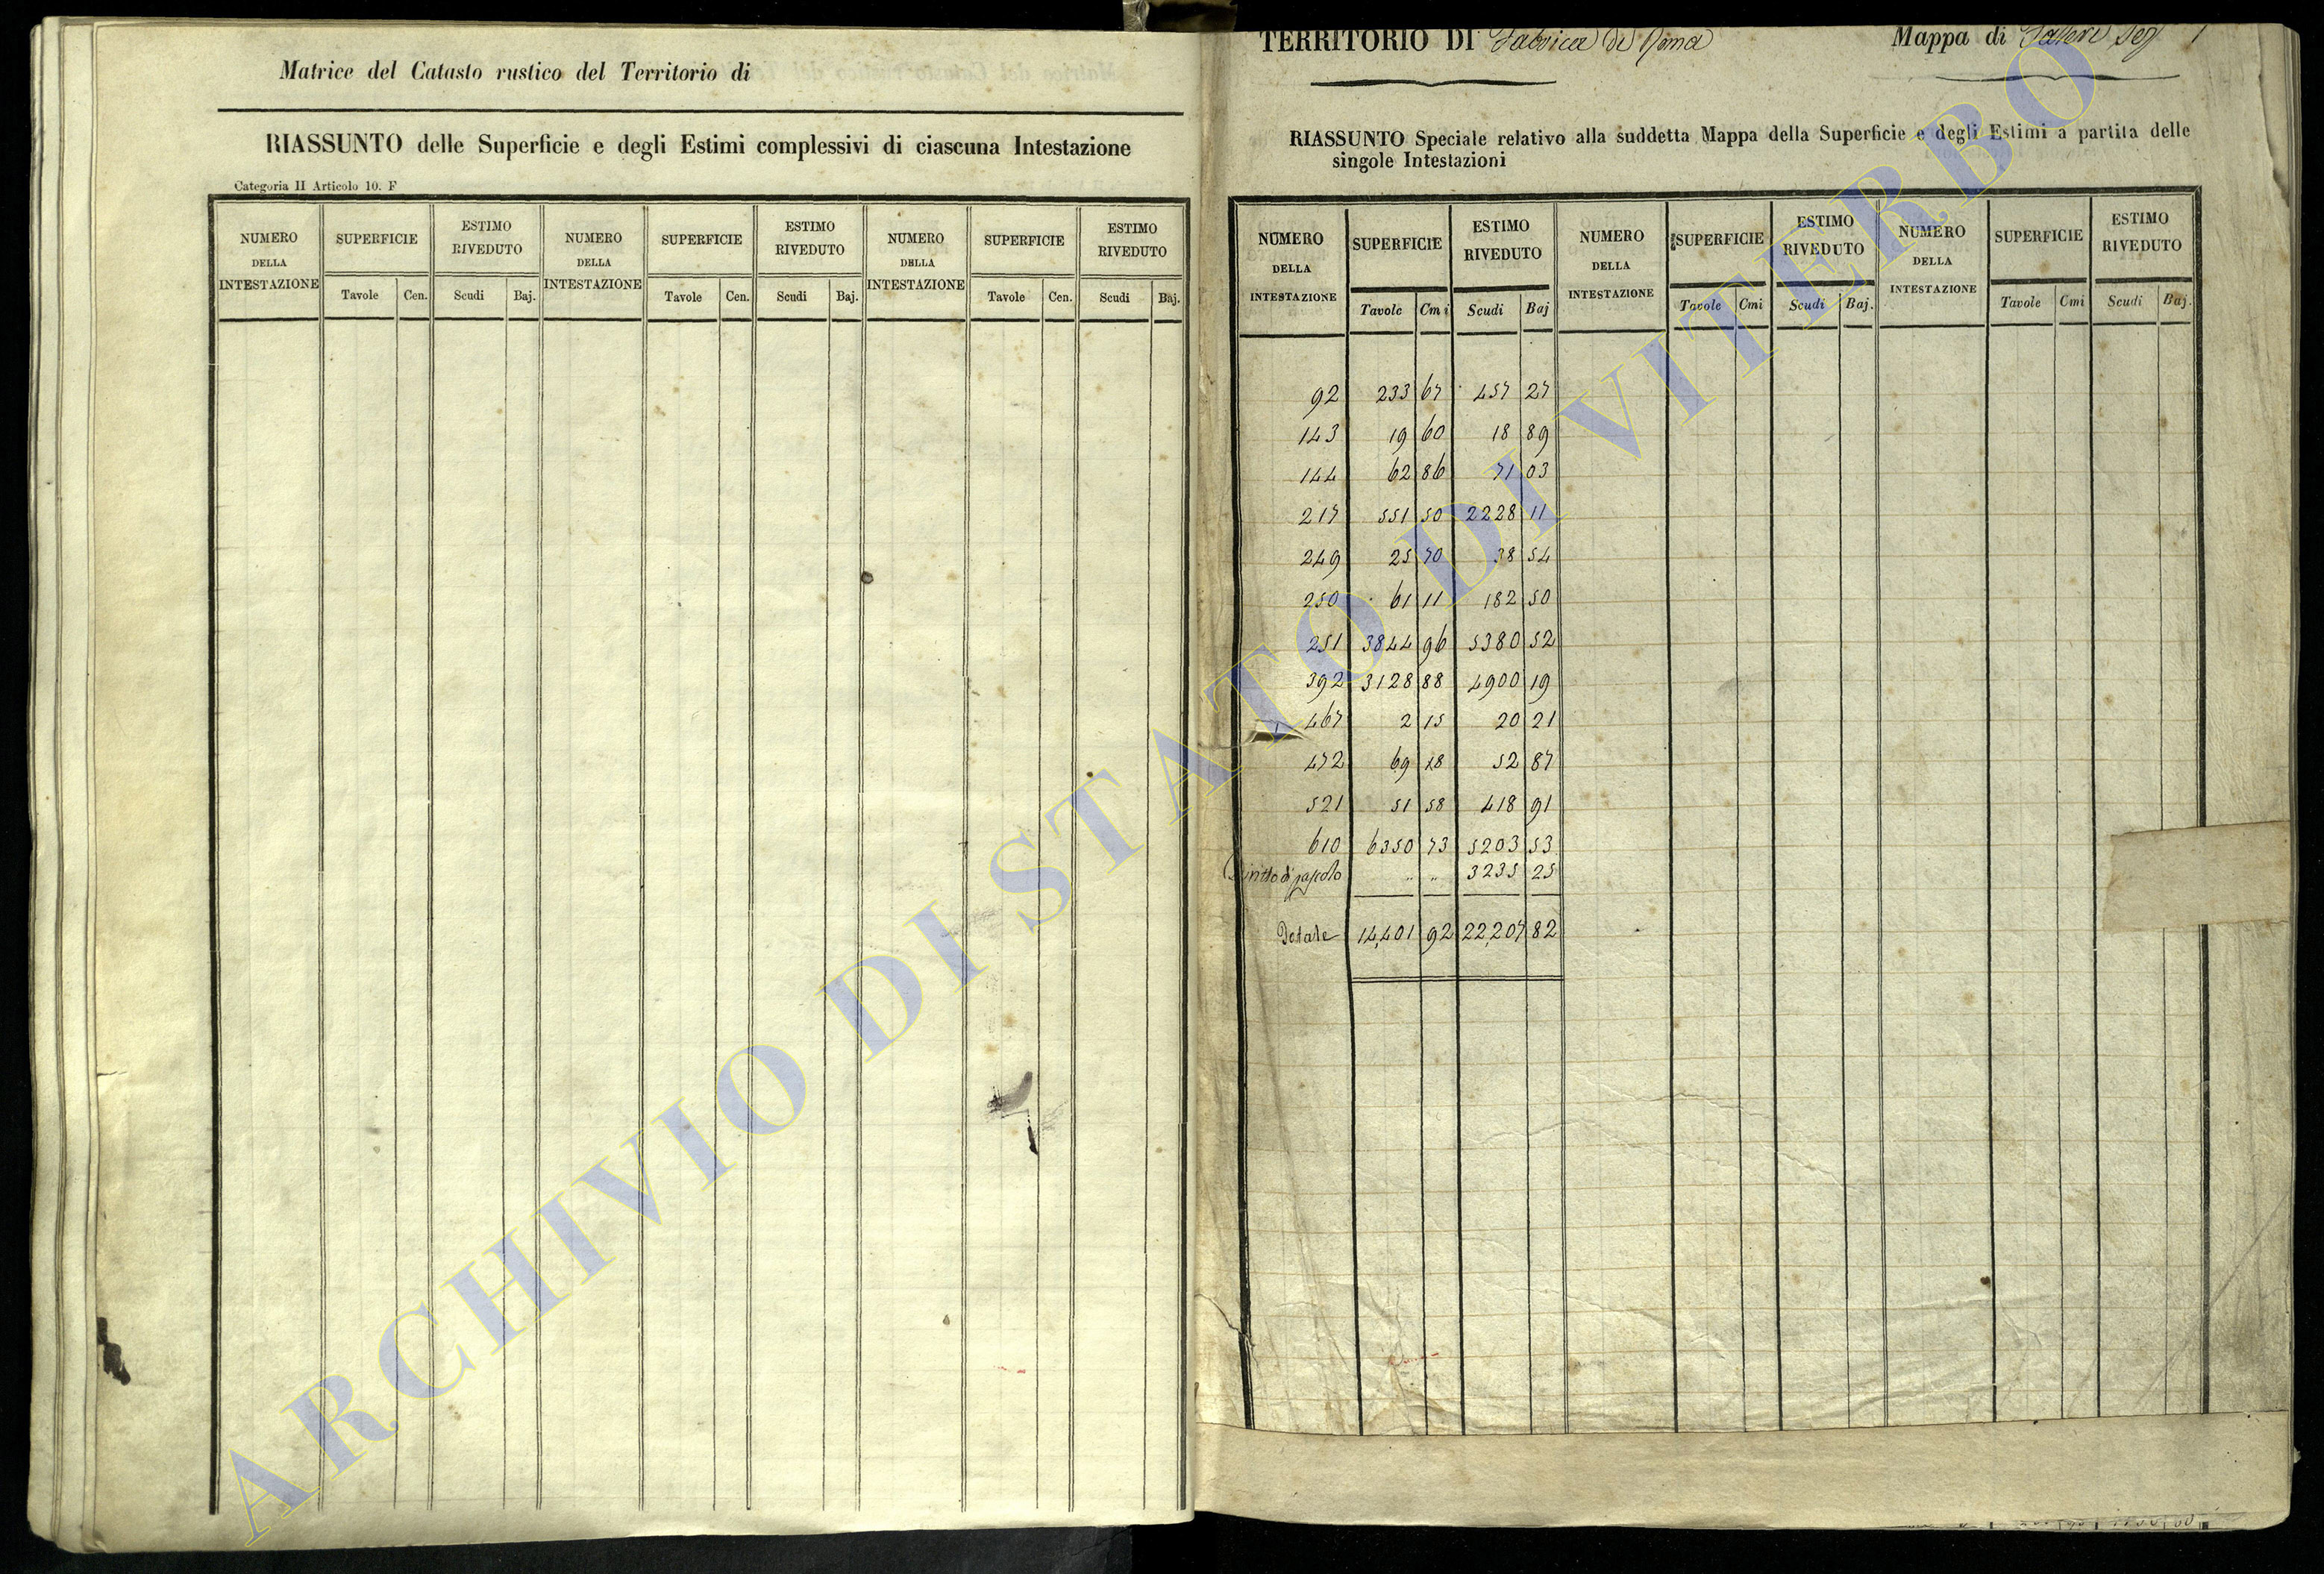 Matrice del Catasto rustico del Territorio di
RIASSUNTO delle Superficie e degli Estimi complessivi di ciascuna Intestazione
Categoria II Articolo 10. F
NUMERO DELLA INTESTAZIONE SUPERFICIE ESTIMO RIVEDUTO NUMERO DELLA INTESTAZIONE SUPERFICIE ESTIMO RIVEDUTO NUMERO DELLA INTESTAZIONE SUPERFICIE ESTIMO RIVEDUTO
Tavole Cen. Scudi Baj. Tavole Cen. Scudi Baj. Tavole Cen. Scudi Baj.
TERRITORIO DI Fabrica di Roma Mappa di Faleri
RIASSUNTO Speciale relativo alla suddetta Mappa della Superficie e degli Estimi a partita delle
singole Intestazioni
NUMERO DELLA INTESTAZIONE SUPERFICIE ESTIMO RIVEDUTO NUMERO DELLA INTESTAZIONE SUPERFICIE ESTIMO RIVEDUTO NUMERO DELLA INTESTAZIONE SUPERFICIE ESTIMO RIVEDUTO
Tavole Cmi Scudi Baj Tavole Cmi Scudi Baj. Tavole Cmi Scudi Baj.
92 233 67 457 27
143 19 60 18 89
144 62 86 71 03
217 551 50 2228 11
249 25 70 38 54
250 61 11 182 50
251 3844 96 5380 52
392 3128 88 4900 19
467 2 15 20 21
472 69 18 52 87
521 51 58 418 91
610 6350 73 5203 53
Diritto di pascolo " " 3235 25
Totale 14,401 92 22,207 82
ARCHIVIO DI STATO DI VITERBO